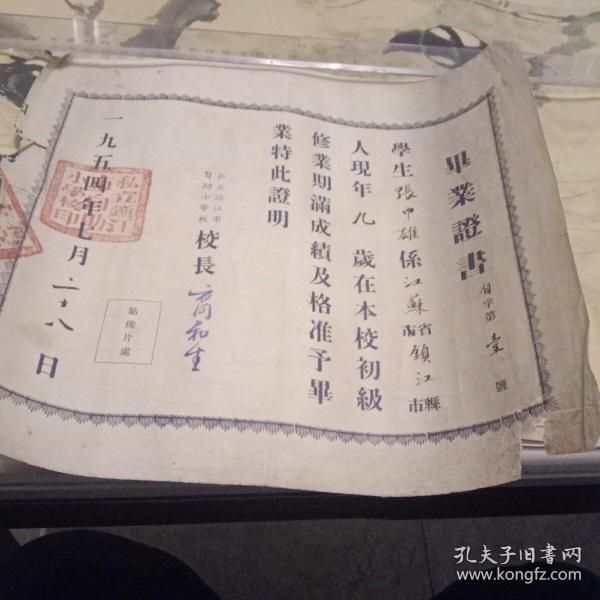 畢業證書
自字第壹號
學生張中雄係江蘇省市鎮江縣市
人現年九歲在本校初級
修業期滿成績及格准予畢
業特此證明
私立鎮江市
自助小學校
校長
和生
貼像片處
一九五四年七月二十八日
私立鎮江
市自助
小學校印
孔夫子旧书网
www.kongfz.com